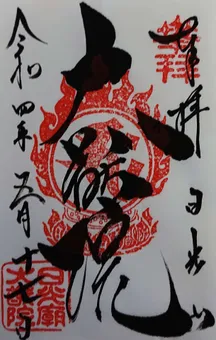 奉拝 日光山
大猷院
令和四年 五月十七日
日光廟
大猷院